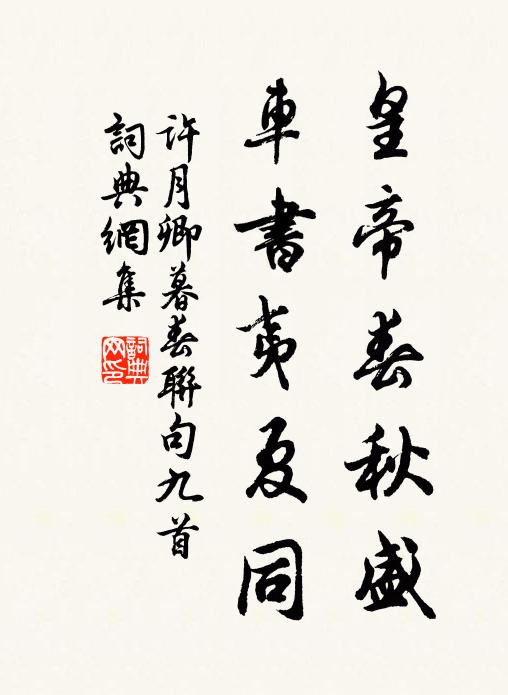 皇帝春秋盛
車書夷夏同
許月卿暮春聯句九首
詞典網集
詞典網印